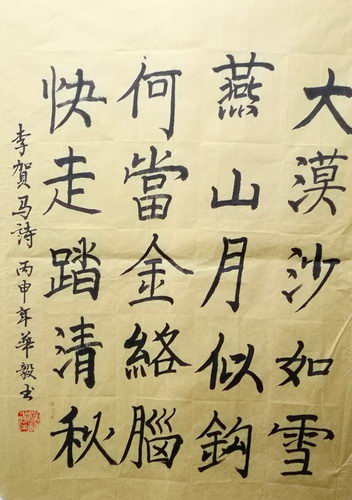 大漠沙如雪
燕山月似鈎
何當金絡腦
快走踏清秋
李賀马詩 丙申年華毅书